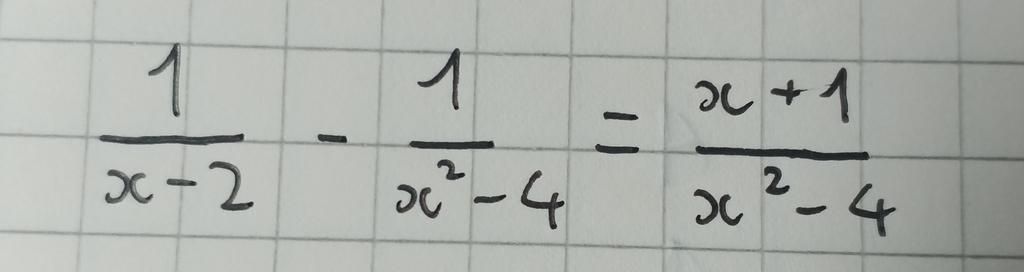 1/(x-2) - 1/(x²-4) = (x+1)/(x²-4)